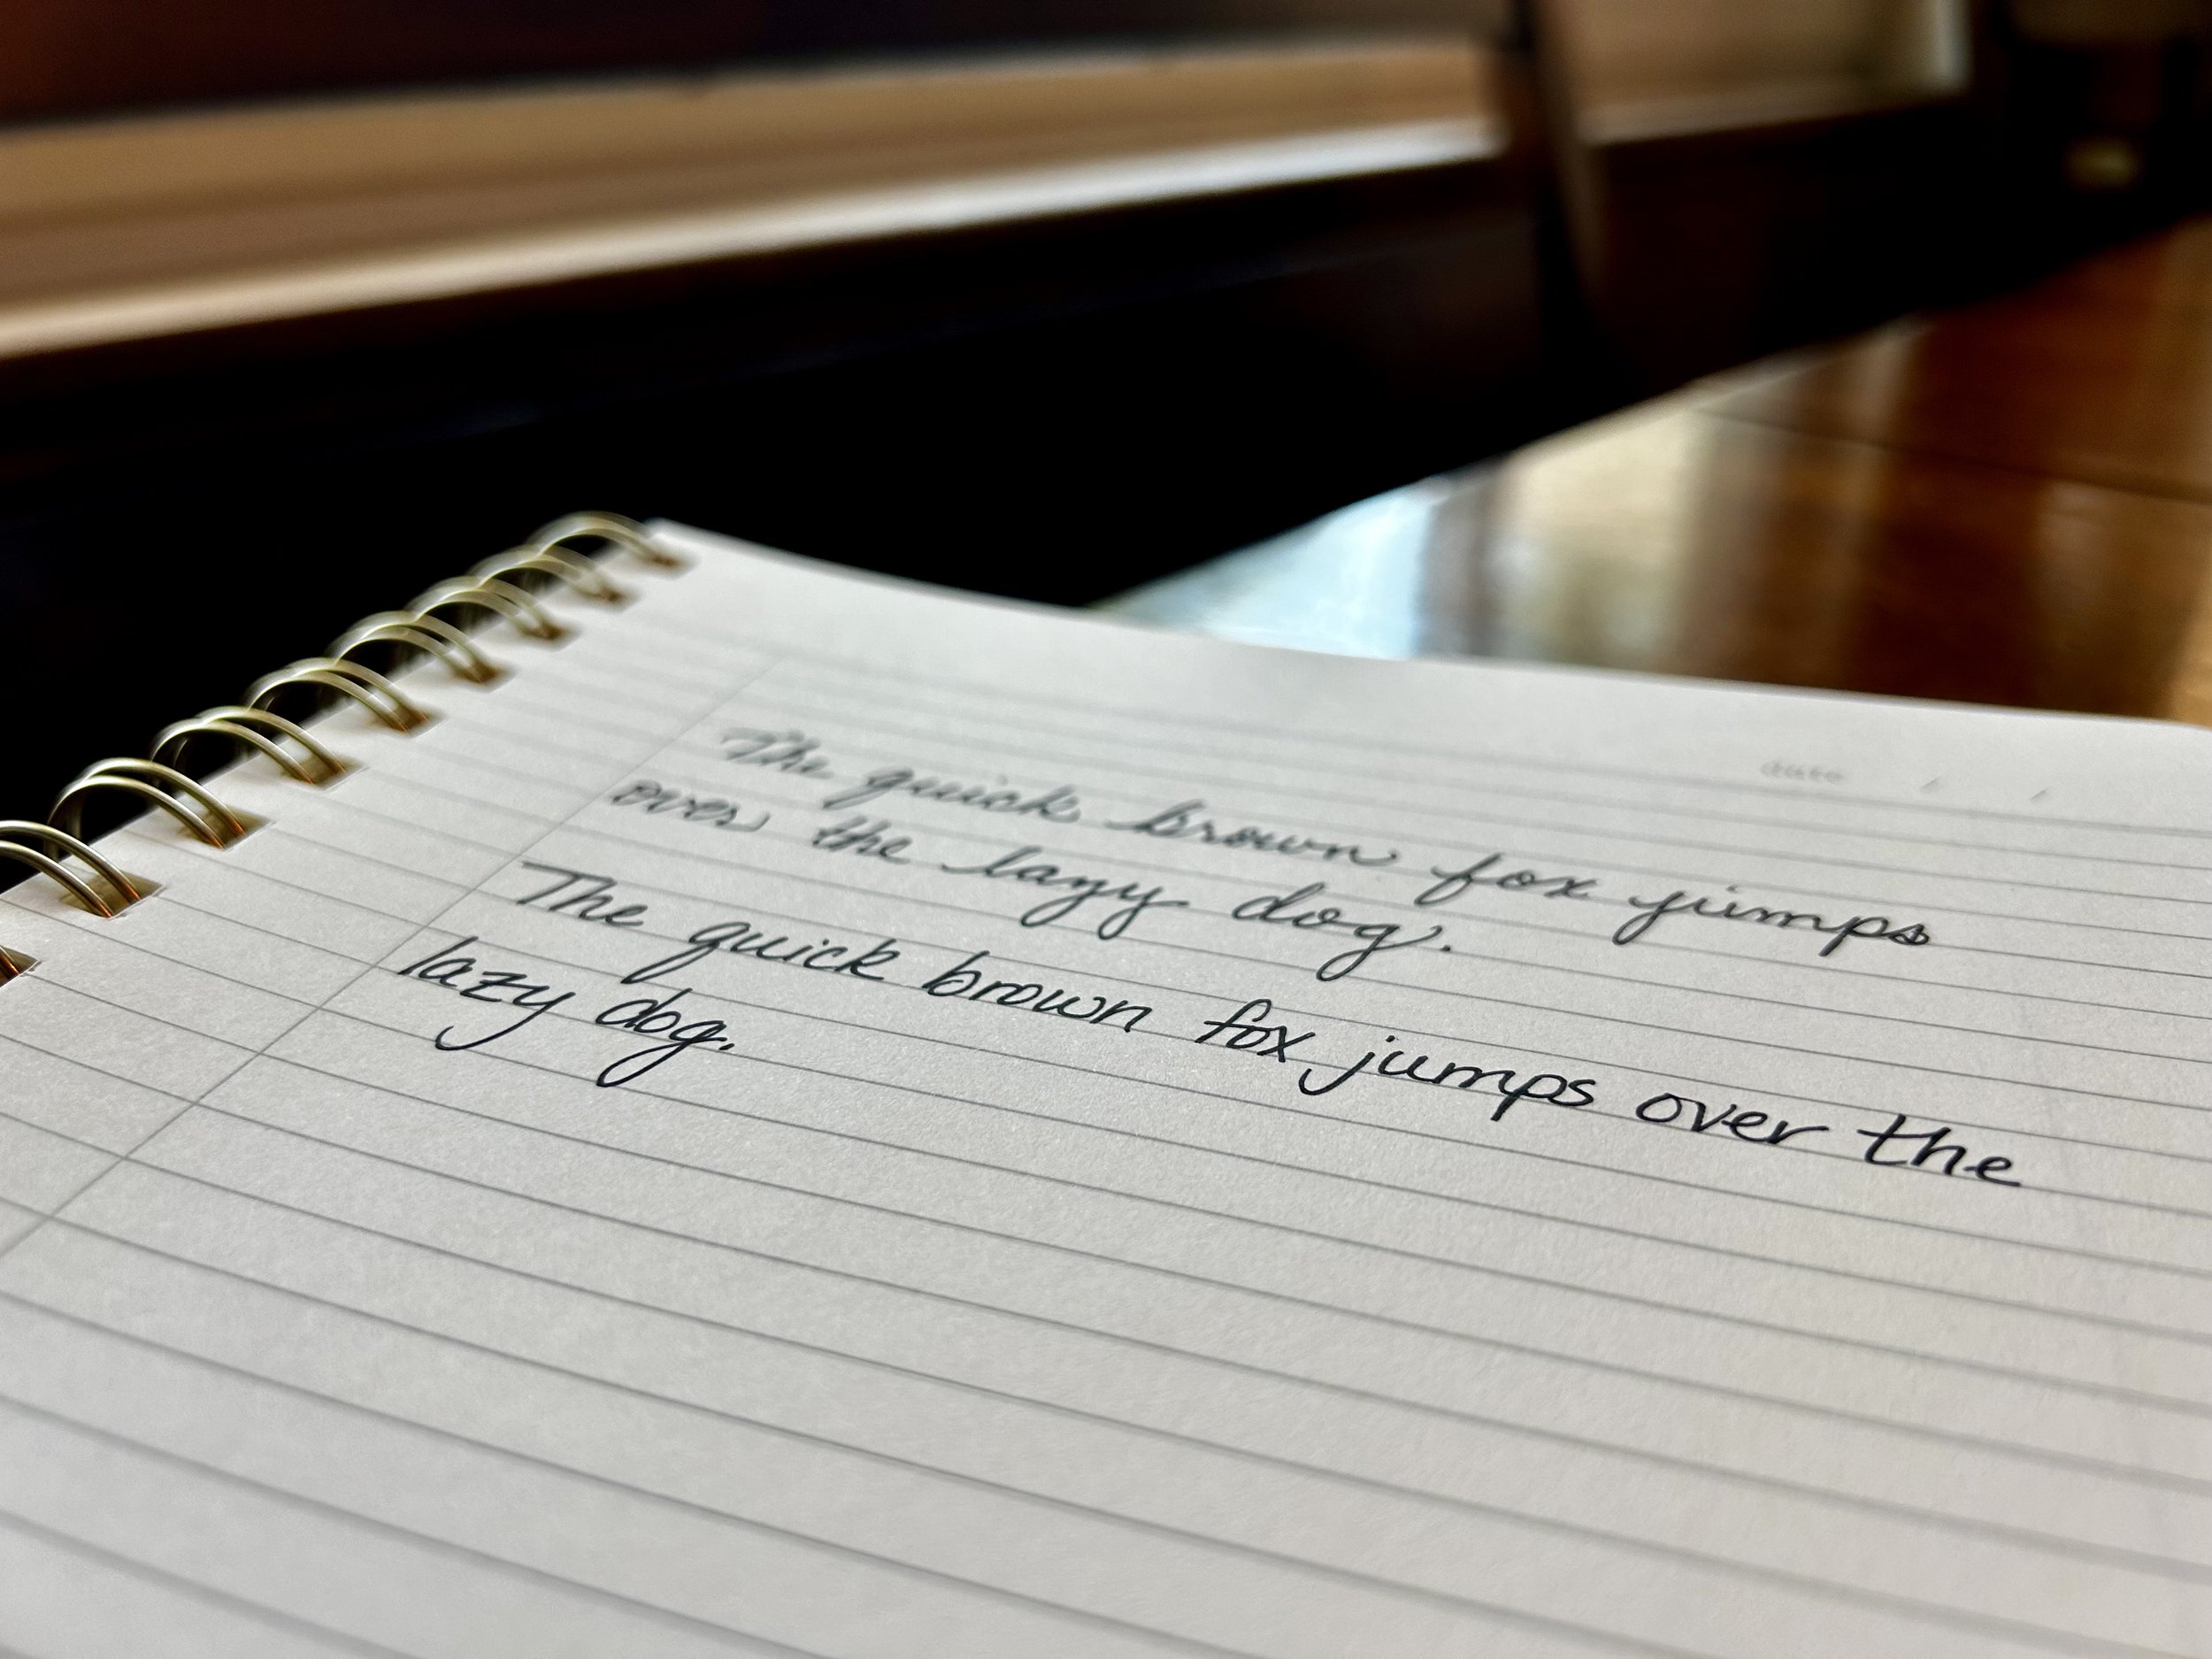 date / /
The quick brown fox jumps
over the lazy dog.
The quick brown fox jumps over the
lazy dog.